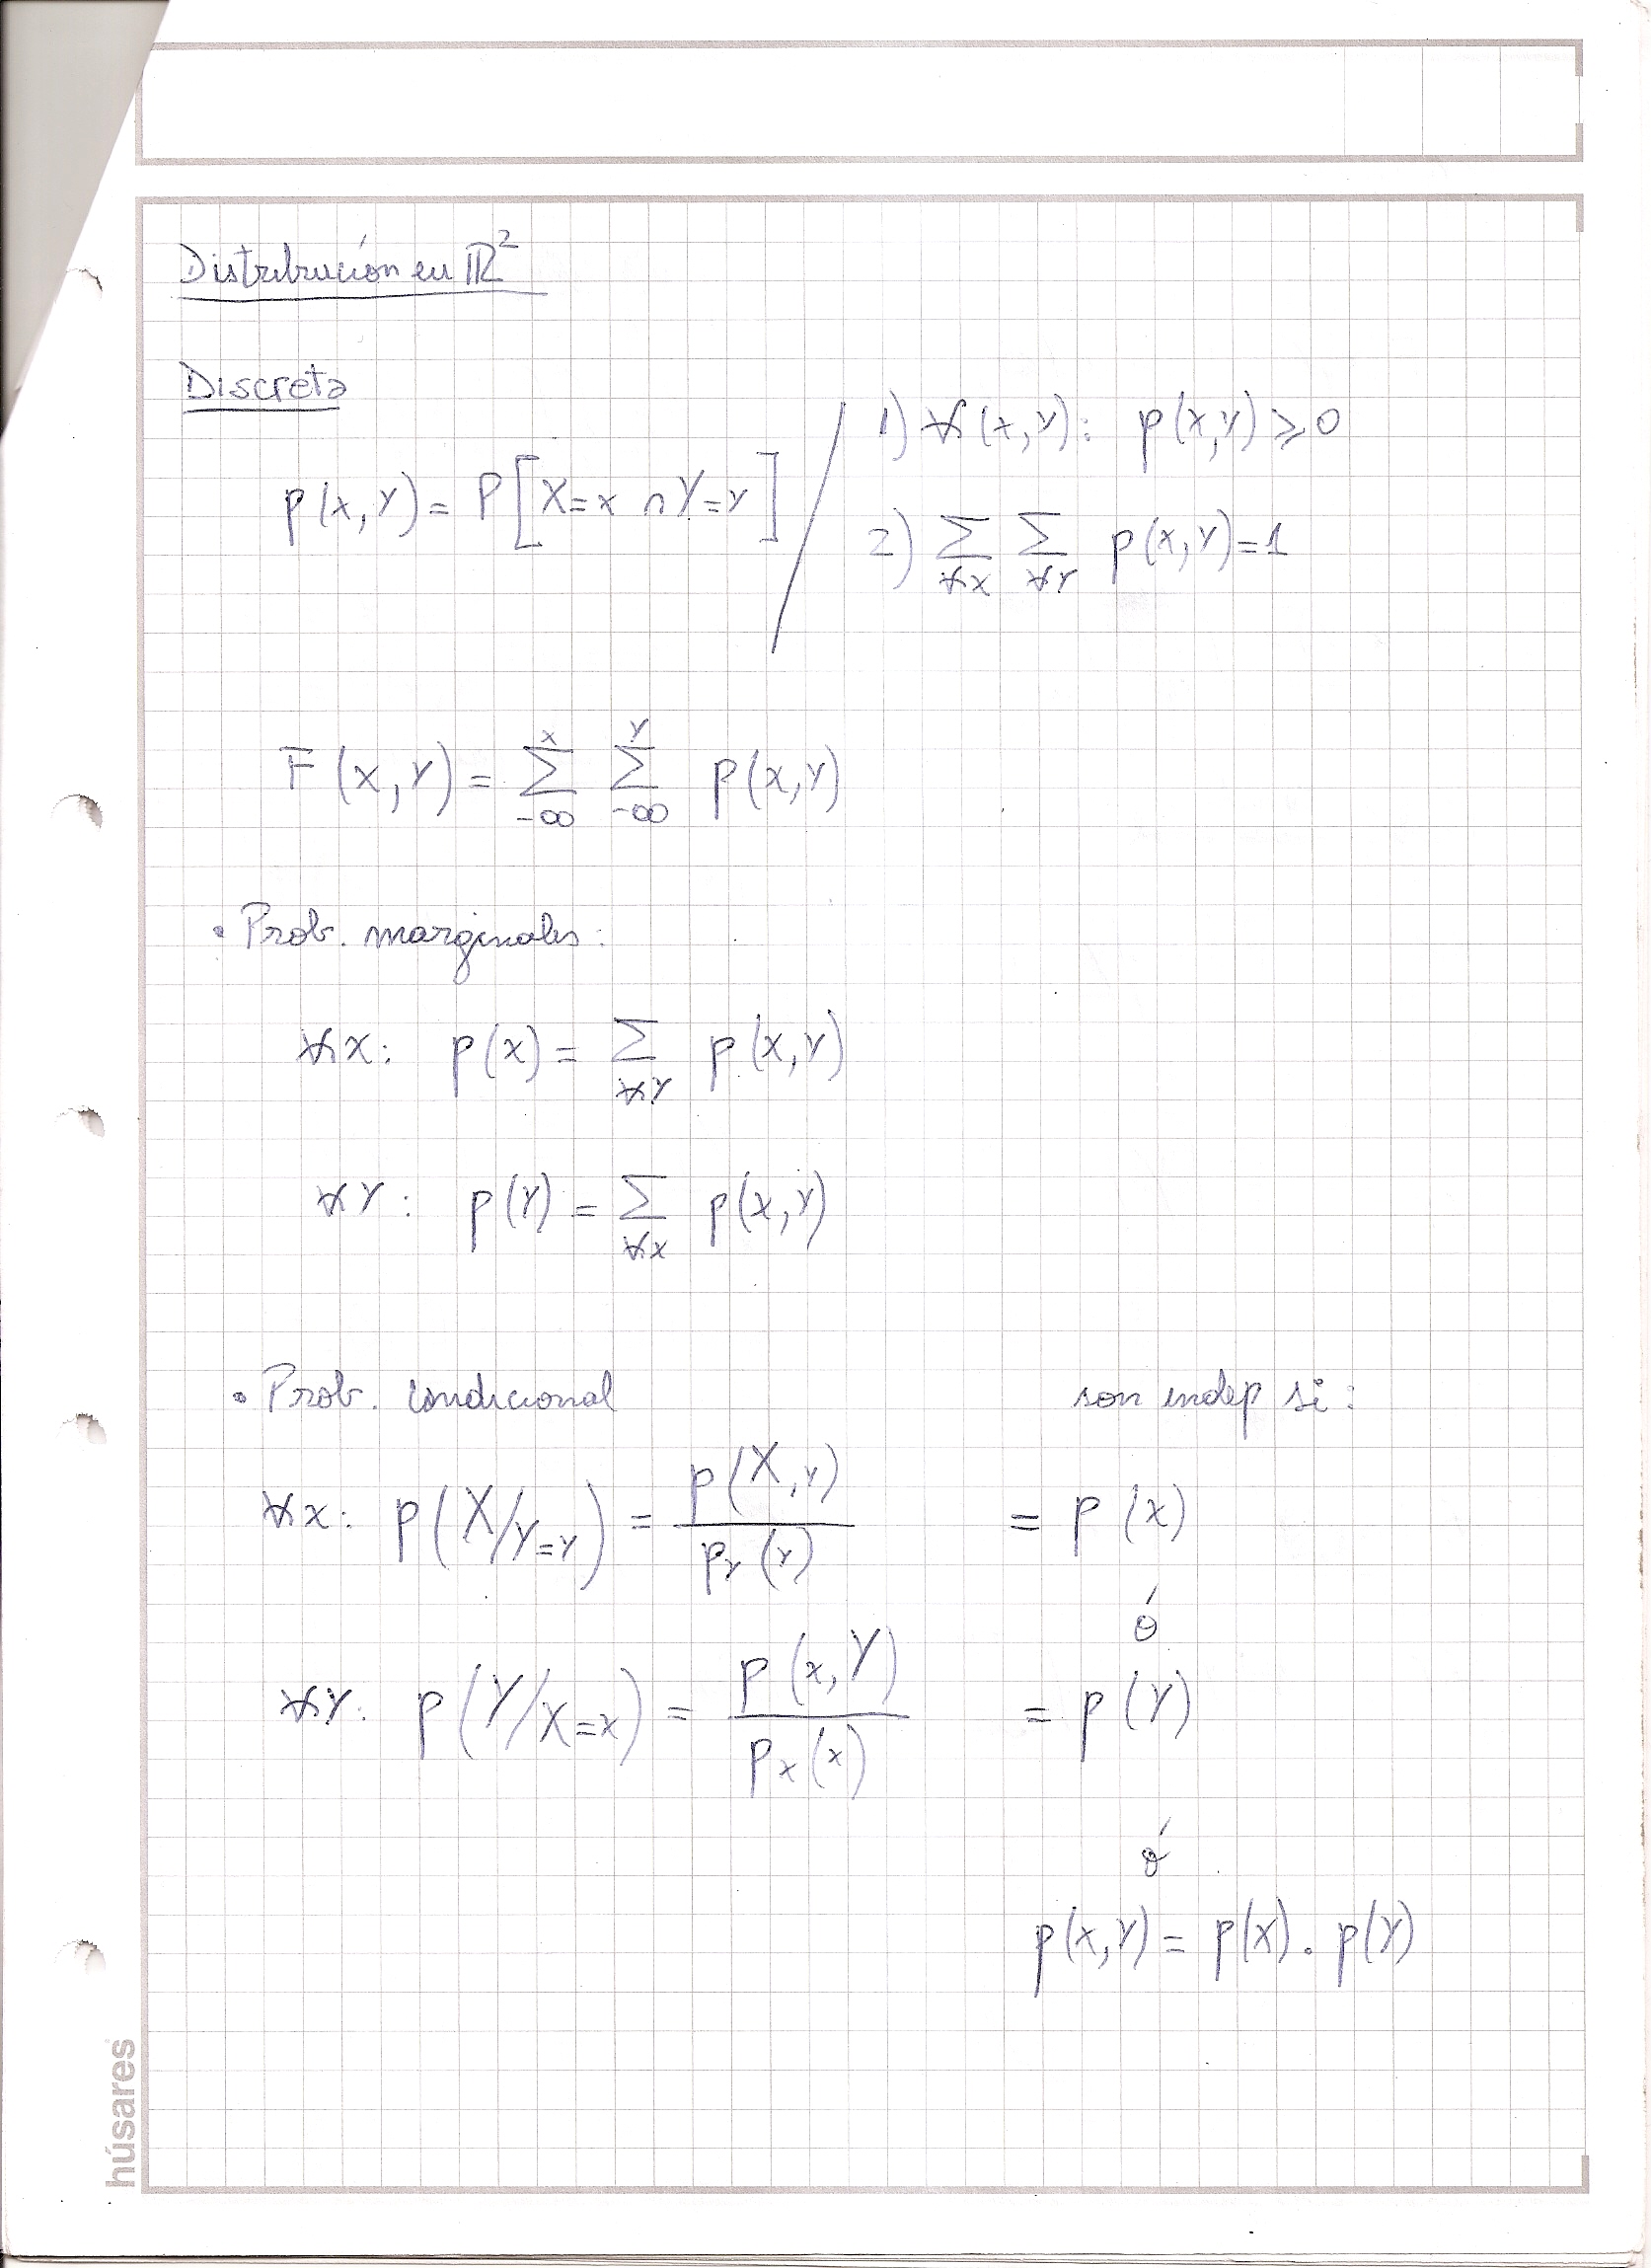 Distribución en ℝ²
Discreta
p(x,y) = P[X=x ∩ Y=y] / 1) ∀(x,y): p(x,y) ≥ 0
2) ∑∀x ∑∀y p(x,y)=1
F(x,y) = ∑_{-∞}^{x} ∑_{-∞}^{y} p(x,y)
• Prob. marginales:
∀x: p(x) = ∑∀y p(x,y)
∀y: p(y) = ∑∀x p(x,y)
• Prob. condicional son indep si:
∀x: p(X/Y=y) = p(X,y) / p_Y(y) = p(x)
ó
∀y: p(Y/X=x) = p(x,Y) / p_X(x) = p(y)
ó
p(x,y) = p(x) . p(y)
húsares